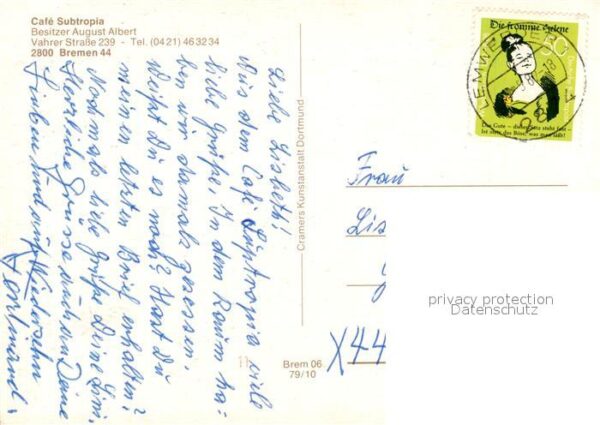 Café Subtropia
Besitzer August Albert
Vahrer Straße 239 - Tel. (04 21) 46 32 34
2800 Bremen 44
Liebe Lisbeth!
Aus dem Café Suptropia viele
liebe Grüße. In dem Raum ha-
ben wir damals gesessen.
Weißt Du es noch? Hast Du
meinen letzten Brief erhalten?
Nochmals liebe Grüße Deine
Herzliche Grüsse auch an Deine
Lieben und auf Wiedersehn
Ferdinand.
Cramers Kunstanstalt Dortmund
Brem 06
79/10
Die fromme Helene
30
Das Gute – dieser Satz steht fest –
ist stets das Böse, was man läßt!
LEMWERDER
Frau
Lis
X44
privacy protection
Datenschutz